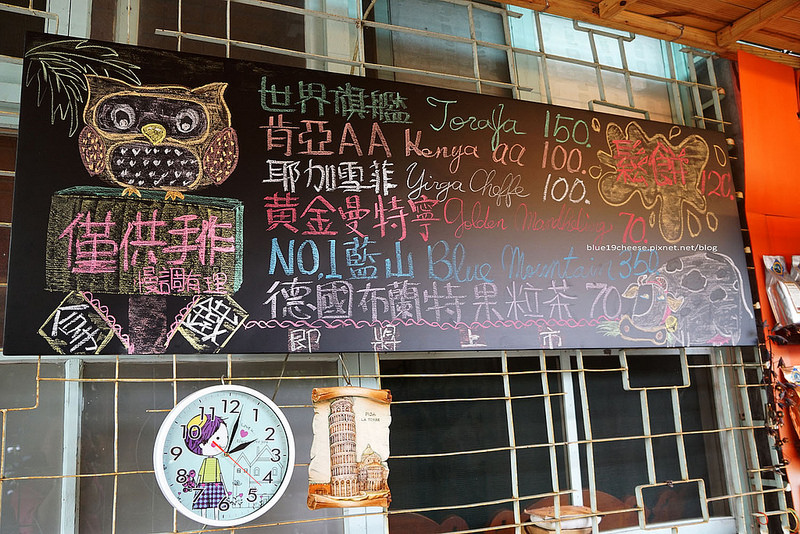 世界旗艦 Toraja 150.
肯亞AA Kenya aa 100.
耶加雪菲 Yirga Cheffe 100.
黃金曼特寧 Golden Mandheling 70.
NO.1藍山 Blue Mountain 350
德國布蘭特果粒茶 70
即將上市
鬆餅 120.
僅供手作
慢調有理
blue19cheese.pixnet.net/blog
12
1
2
3
4
5
6
7
8
9
10
11
PISA
LA TORRE